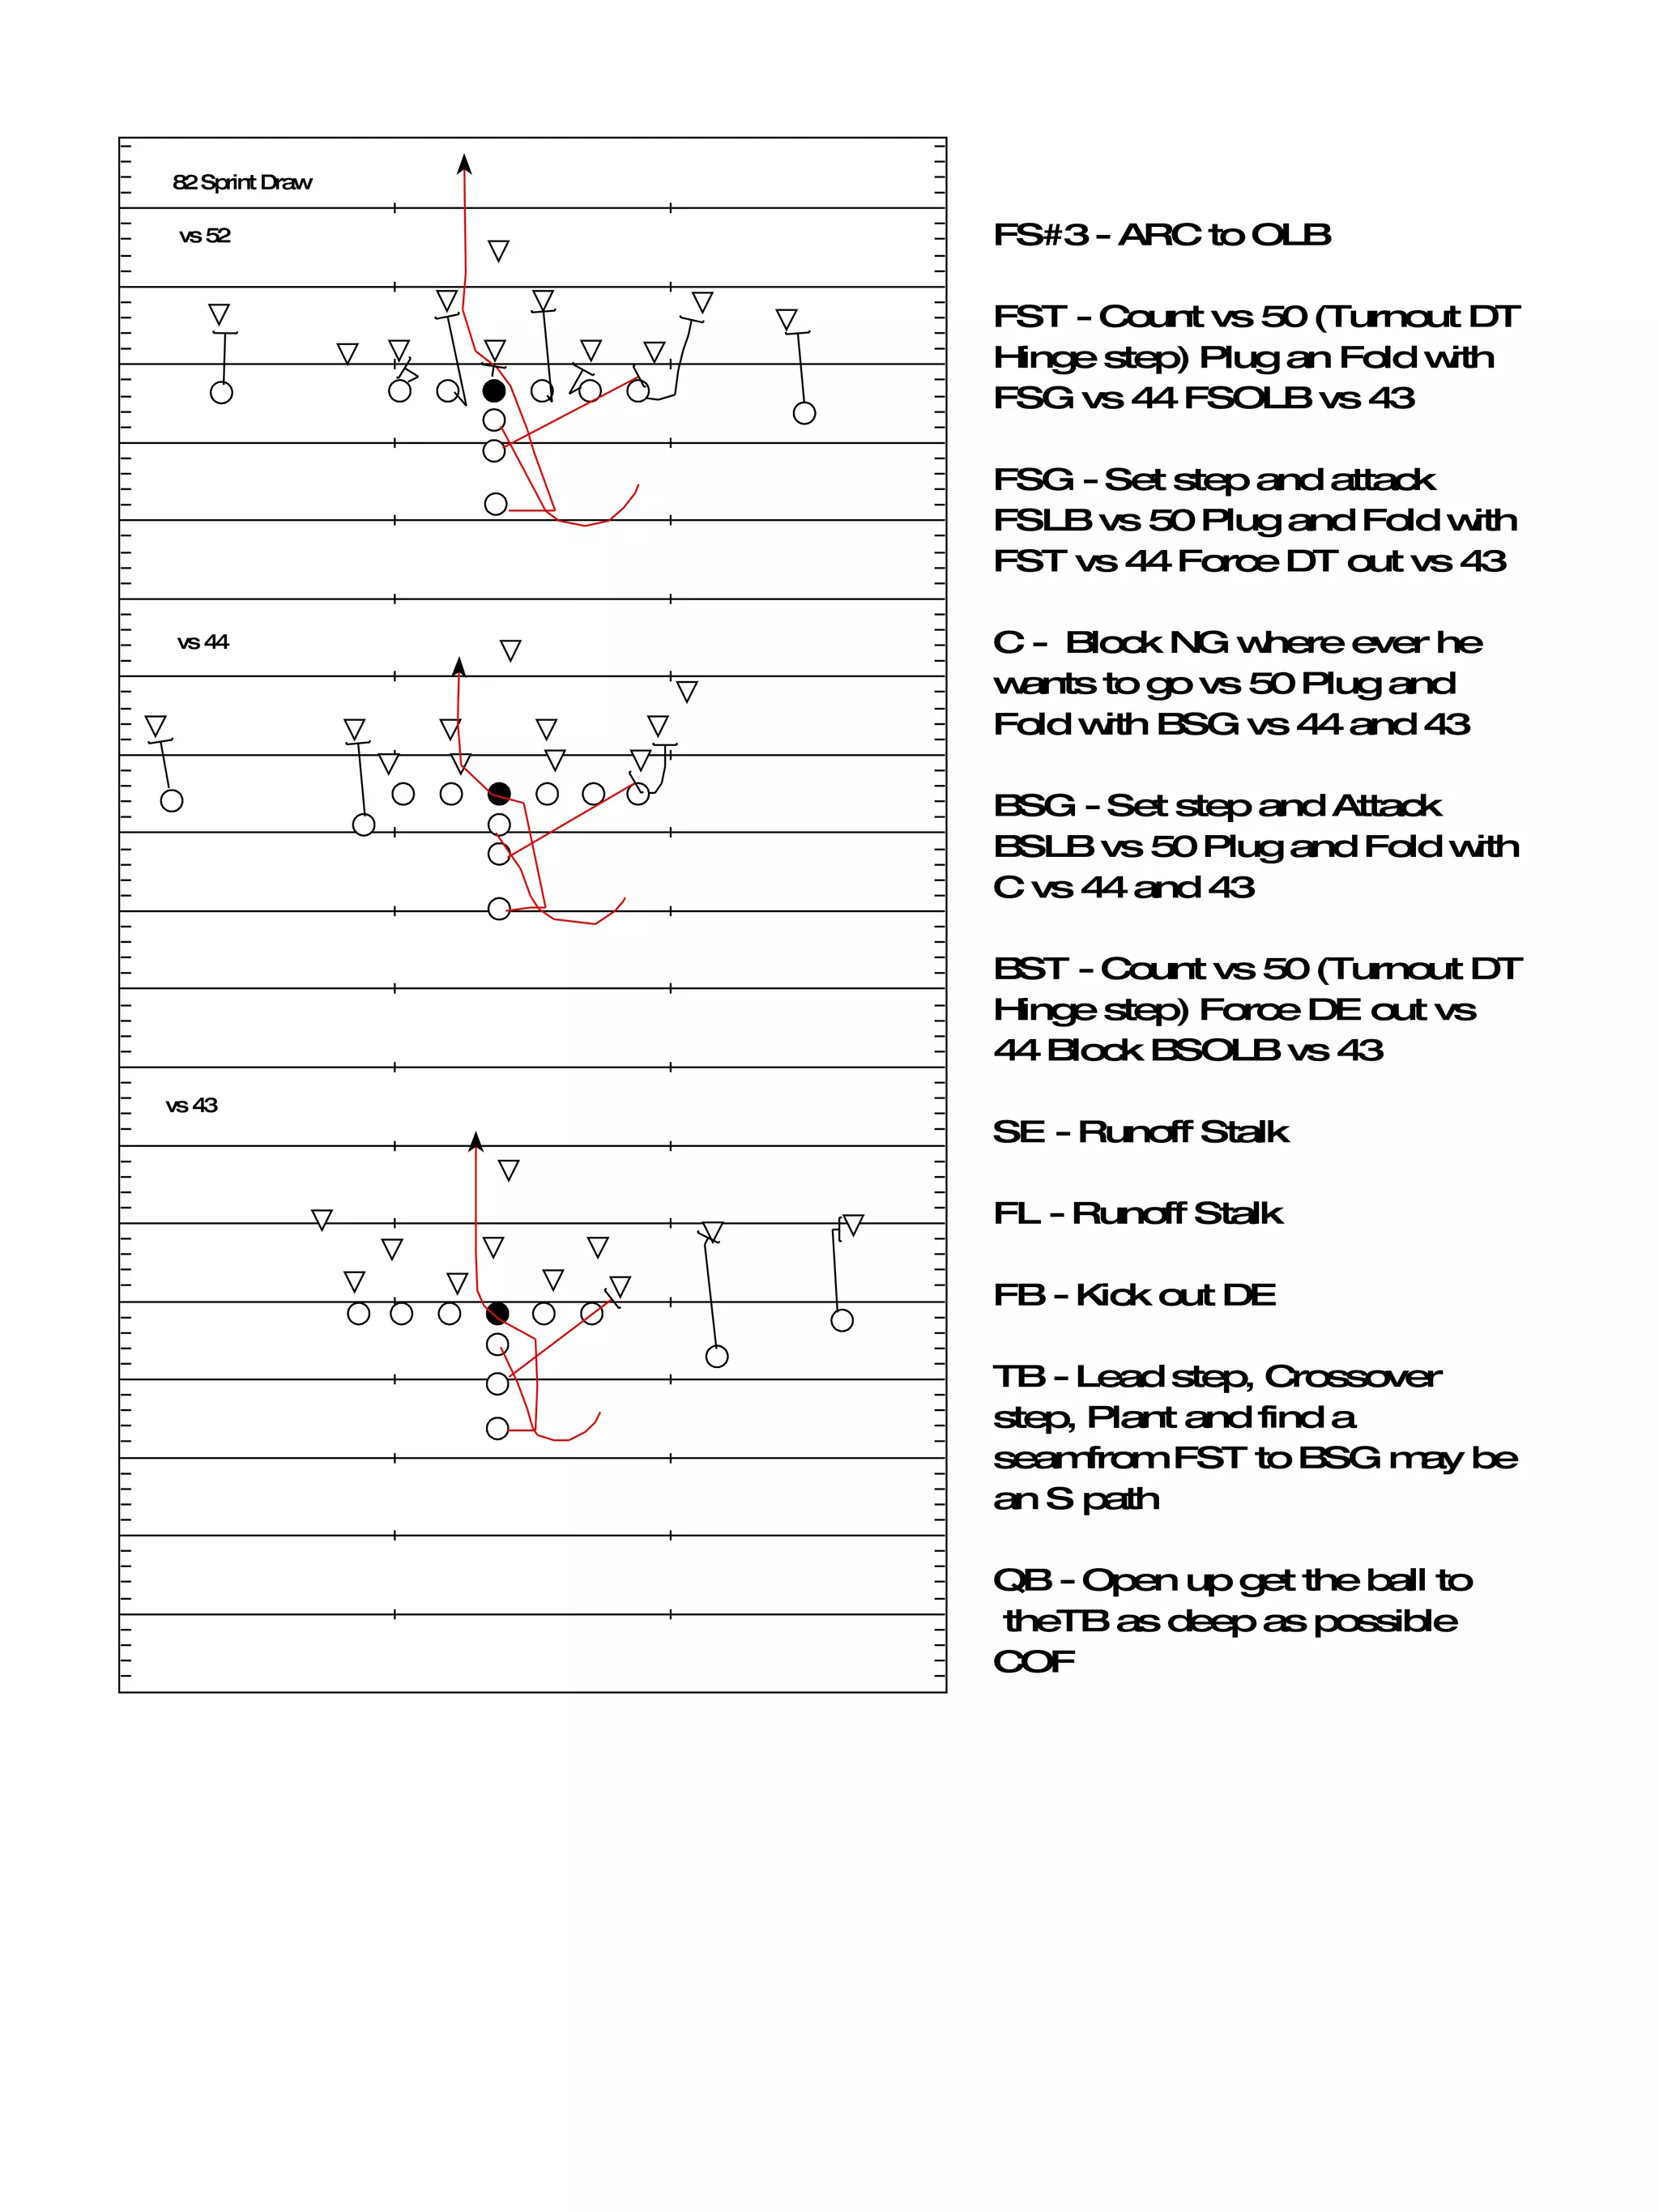 82 Sprint Draw
vs 52
vs 44
vs 43
FS#3 - ARC to OLB
FST - Count vs 50 (Turnout DT
Hinge step) Plug an Fold with
FSG vs 44 FSOLB vs 43
FSG - Set step and attack
FSLB vs 50 Plug and Fold with
FST vs 44 Force DT out vs 43
C - Block NG where ever he
wants to go vs 50 Plug and
Fold with BSG vs 44 and 43
BSG - Set step and Attack
BSLB vs 50 Plug and Fold with
C vs 44 and 43
BST - Count vs 50 (Turnout DT
Hinge step) Force DE out vs
44 Block BSOLB vs 43
SE - Runoff Stalk
FL - Runoff Stalk
FB - Kick out DE
TB - Lead step, Crossover
step, Plant and find a
seam from FST to BSG may be
an S path
QB - Open up get the ball to
the TB as deep as possible
COF